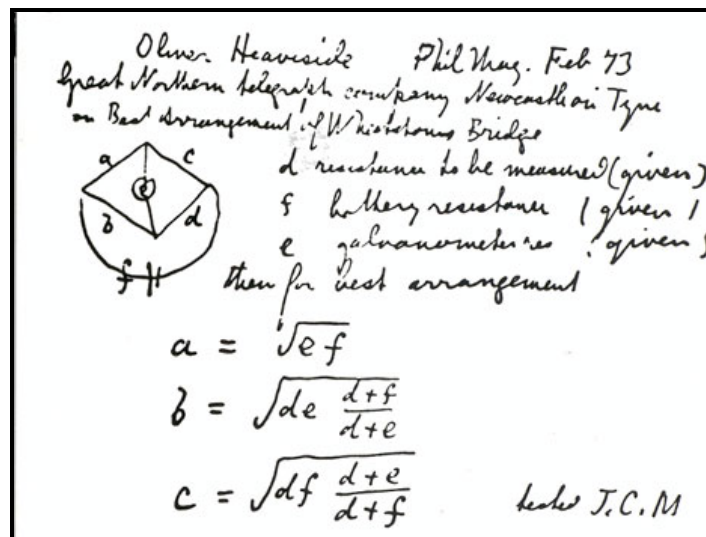 Oliver Heaviside Phil Mag. Feb 73
Great Northern telegraph company Newcastle on Tyne
on Best arrangement of Wheatstones Bridge
a c
e
b d
f
d resistance to be measured (given)
f battery resistance (given)
e galvanometer res (given)
then for best arrangement
a = √ef
b = √de d+f/d+e
c = √df d+e/d+f
tested J.C.M